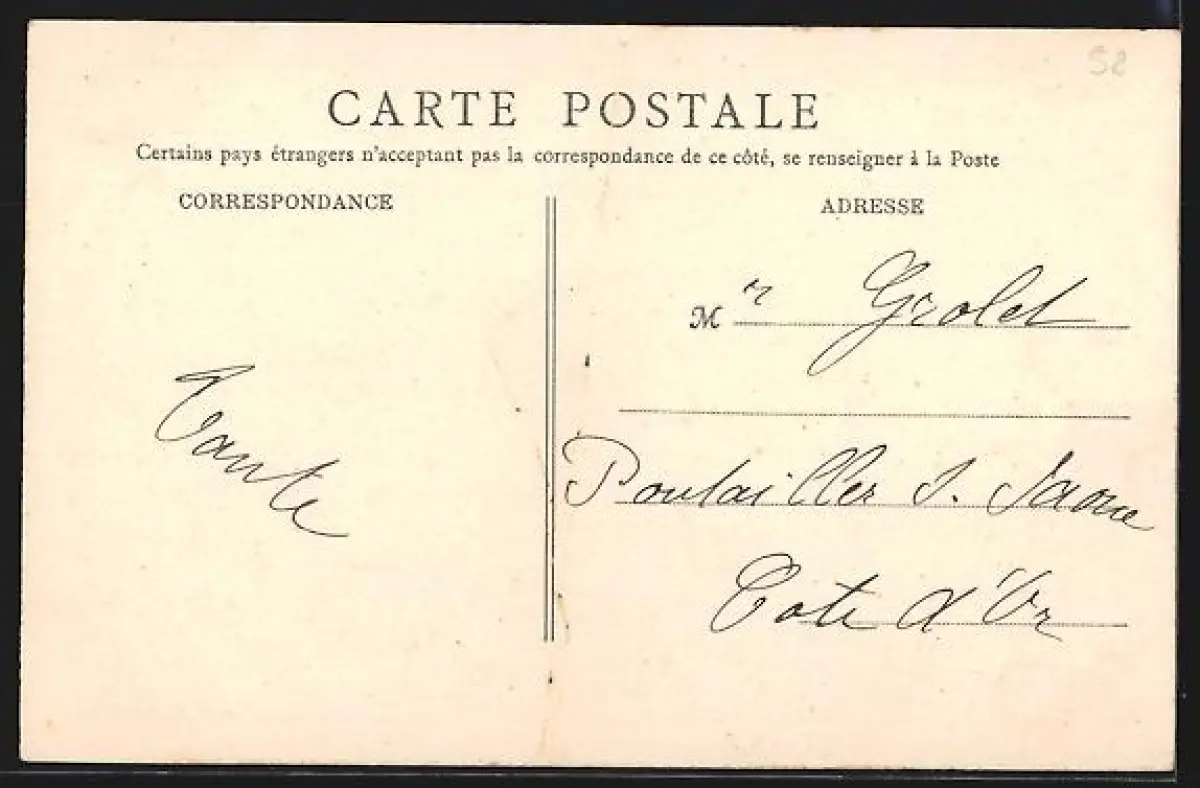 52
CARTE POSTALE
Certains pays étrangers n'acceptant pas la correspondance de ce côté, se renseigner à la Poste
CORRESPONDANCE
ADRESSE
Mr Grolet
Tante
Poulailler s. Saone
Cote d'Or